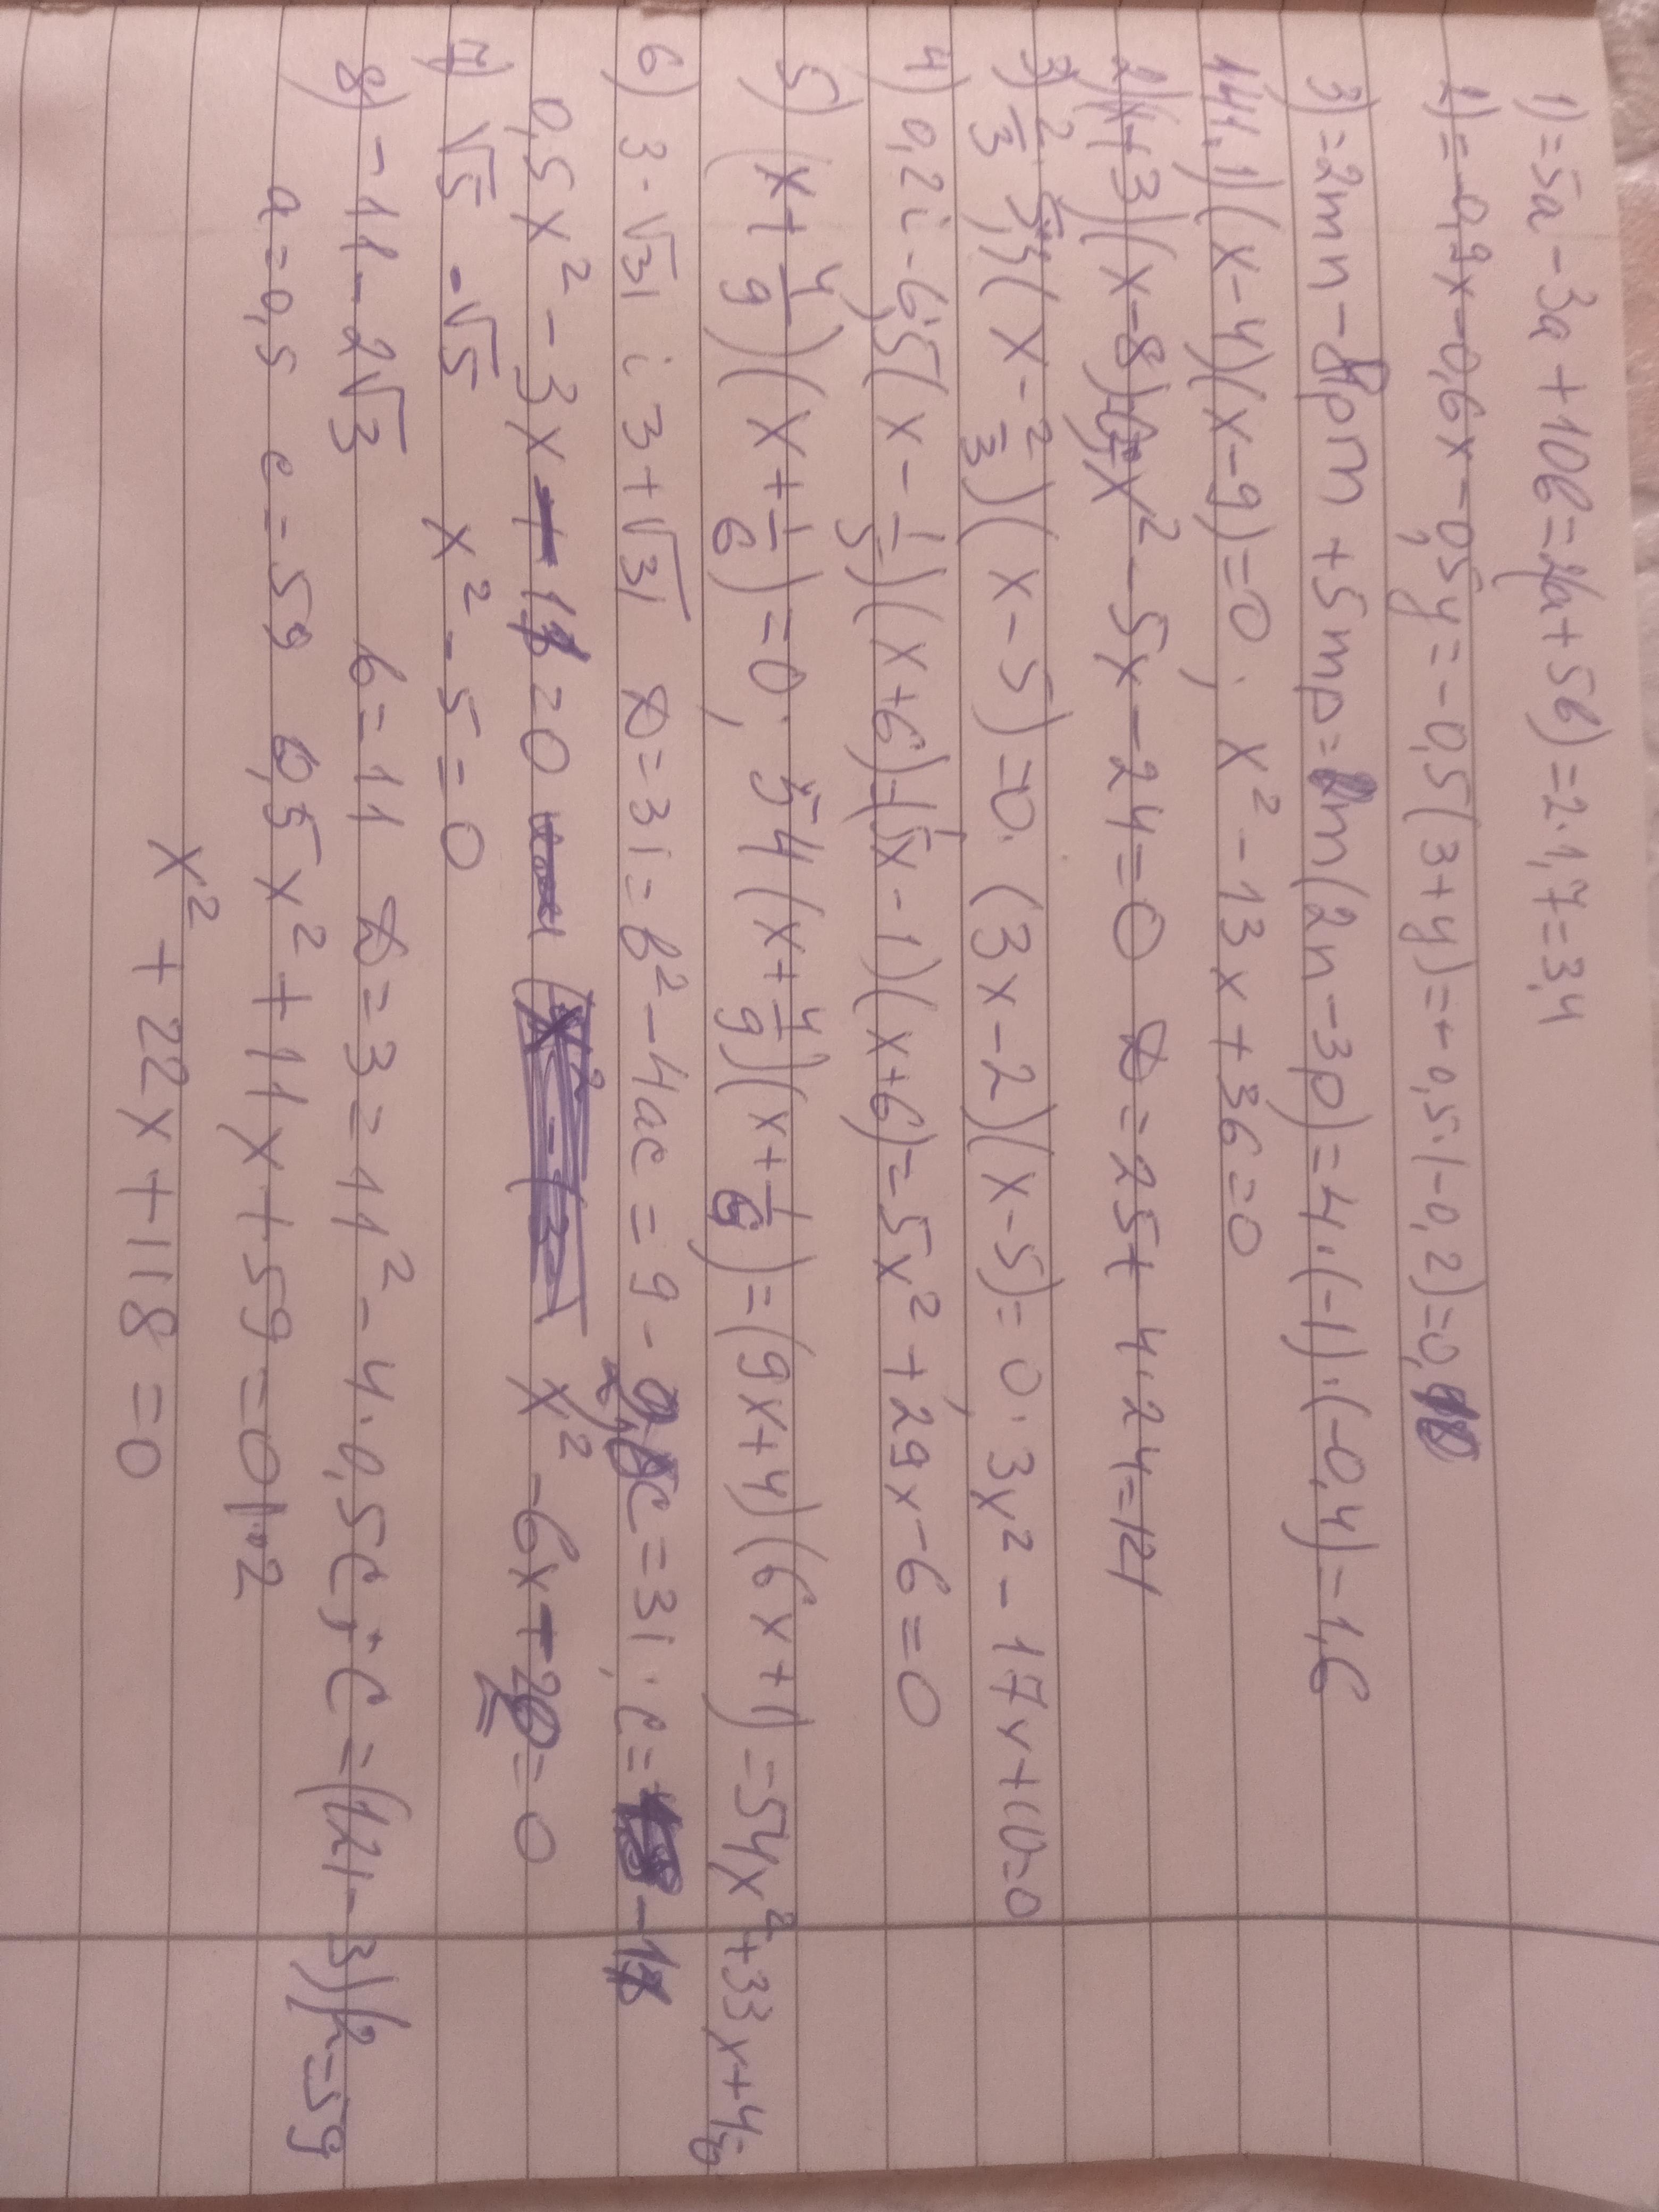 1) = 5a - 3a + 10b = 2(a + 5b) = 2·1,7 = 3,4
2) = -0,9x - 0,6x - 0,5y = -0,5(3 + y) = -0,5·(-0,2) = 0,10
3) = 2mn - 8pm + 5mp = m(2n - 3p) = 4·(-1)·(-0,4) = 1,6
144.1) (x-4)(x-9) = 0; x² - 13x + 36 = 0
2) (x+3)(x-8) = x² - 5x - 24 = 0 D = 25 + 4·24 = 121
3) 2/3; 5; (x - 2/3)(x - 5) = 0· (3x - 2)(x - 5) = 0· 3x² - 17x + 10 = 0
4) 0,2 i -6; 5(x - 1/5)(x + 6) = (5x - 1)(x + 6) = 5x² + 29x - 6 = 0
5) (x + 4/9)(x + 1/6) = 0; 54(x + 4/9)(x + 1/6) = (9x + 4)(6x + 1) = 54x² + 33x + 4 = 0
6) 3 - √31 i 3 + √31 D = 31 = b² - 4ac = 9 - 2c = 31; c = -11
0,5x² - 3x - 11 = 0 x² - 6x - 22 = 0
7) √5 -√5 x² - 5 = 0
8) -11 - 2√3 b = 11 D = 3 = 11² - 4·0,5c; c = (121 - 3)/2 = 59
a = 0,5 c = 59 0,5x² + 11x + 59 = 0 |·2
x² + 22x + 118 = 0